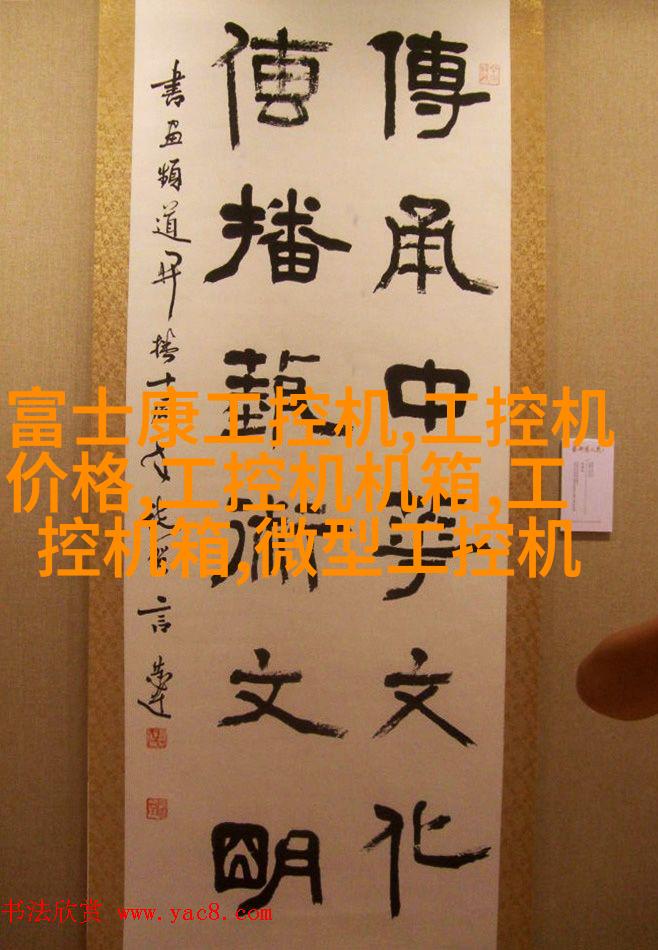 傳承中華文化
傳播藝術文明
書畫頻道開播十周年
言
富士康工控机,工控机
价格,工控机机箱,工
控机箱,微型工控机
书法欣赏 www.yac8.com